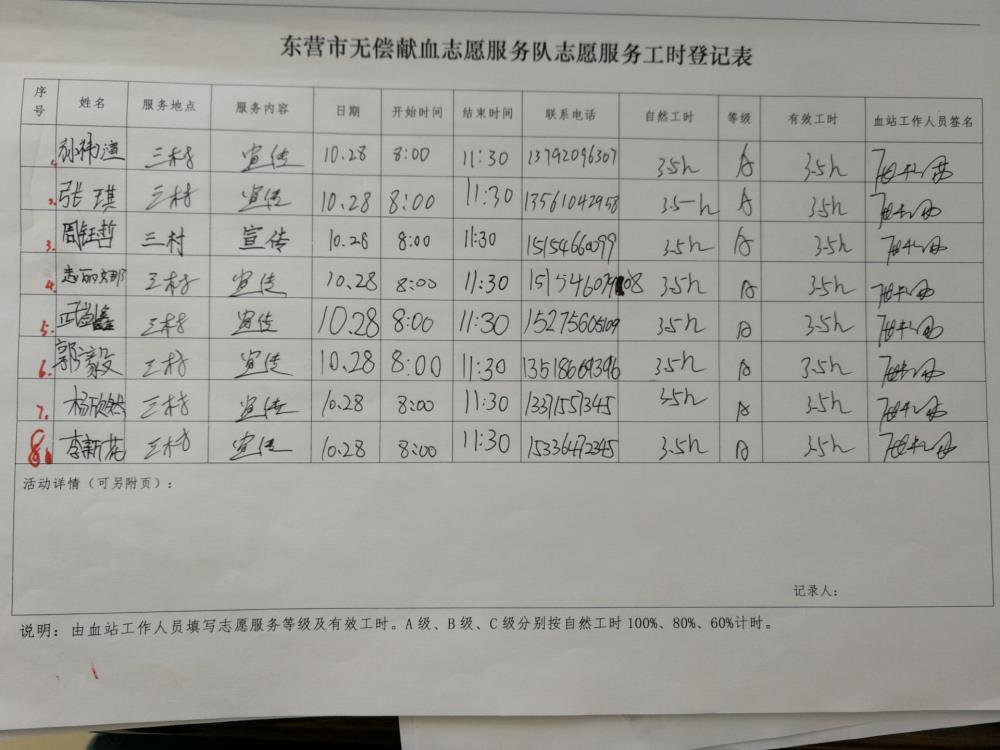 东营市无偿献血志愿服务队志愿服务工时登记表
序号 姓名 服务地点 服务内容 日期 开始时间 结束时间 联系电话 自然工时 等级 有效工时 血站工作人员签名
1. 三村 宣传 10.28 8:00 11:30 13792096307 3.5h A 3.5h
2. 张琪 三村 宣传 10.28 8:00 11:30 13561042958 3.5h A 3.5h
3. 周钰哲 三村 宣传 10.28 8:00 11:30 15154660099 3.5h A 3.5h
4. 三村 宣传 10.28 8:00 11:30 3.5h A 3.5h
5. 三村 宣传 10.28 8:00 11:30 15275605109 3.5h A 3.5h
6. 郭毅 三村 宣传 10.28 8:00 11:30 13518669396 3.5h A 3.5h
7. 杨欣然 三村 宣传 10.28 8:00 11:30 13371551345 3.5h A 3.5h
8. 李新花 三村 宣传 10.28 8:00 11:30 15336472345 3.5h A 3.5h
活动详情（可另附页）：
记录人：
说明：由血站工作人员填写志愿服务等级及有效工时。A级、B级、C级分别按自然工时100%、80%、60%计时。